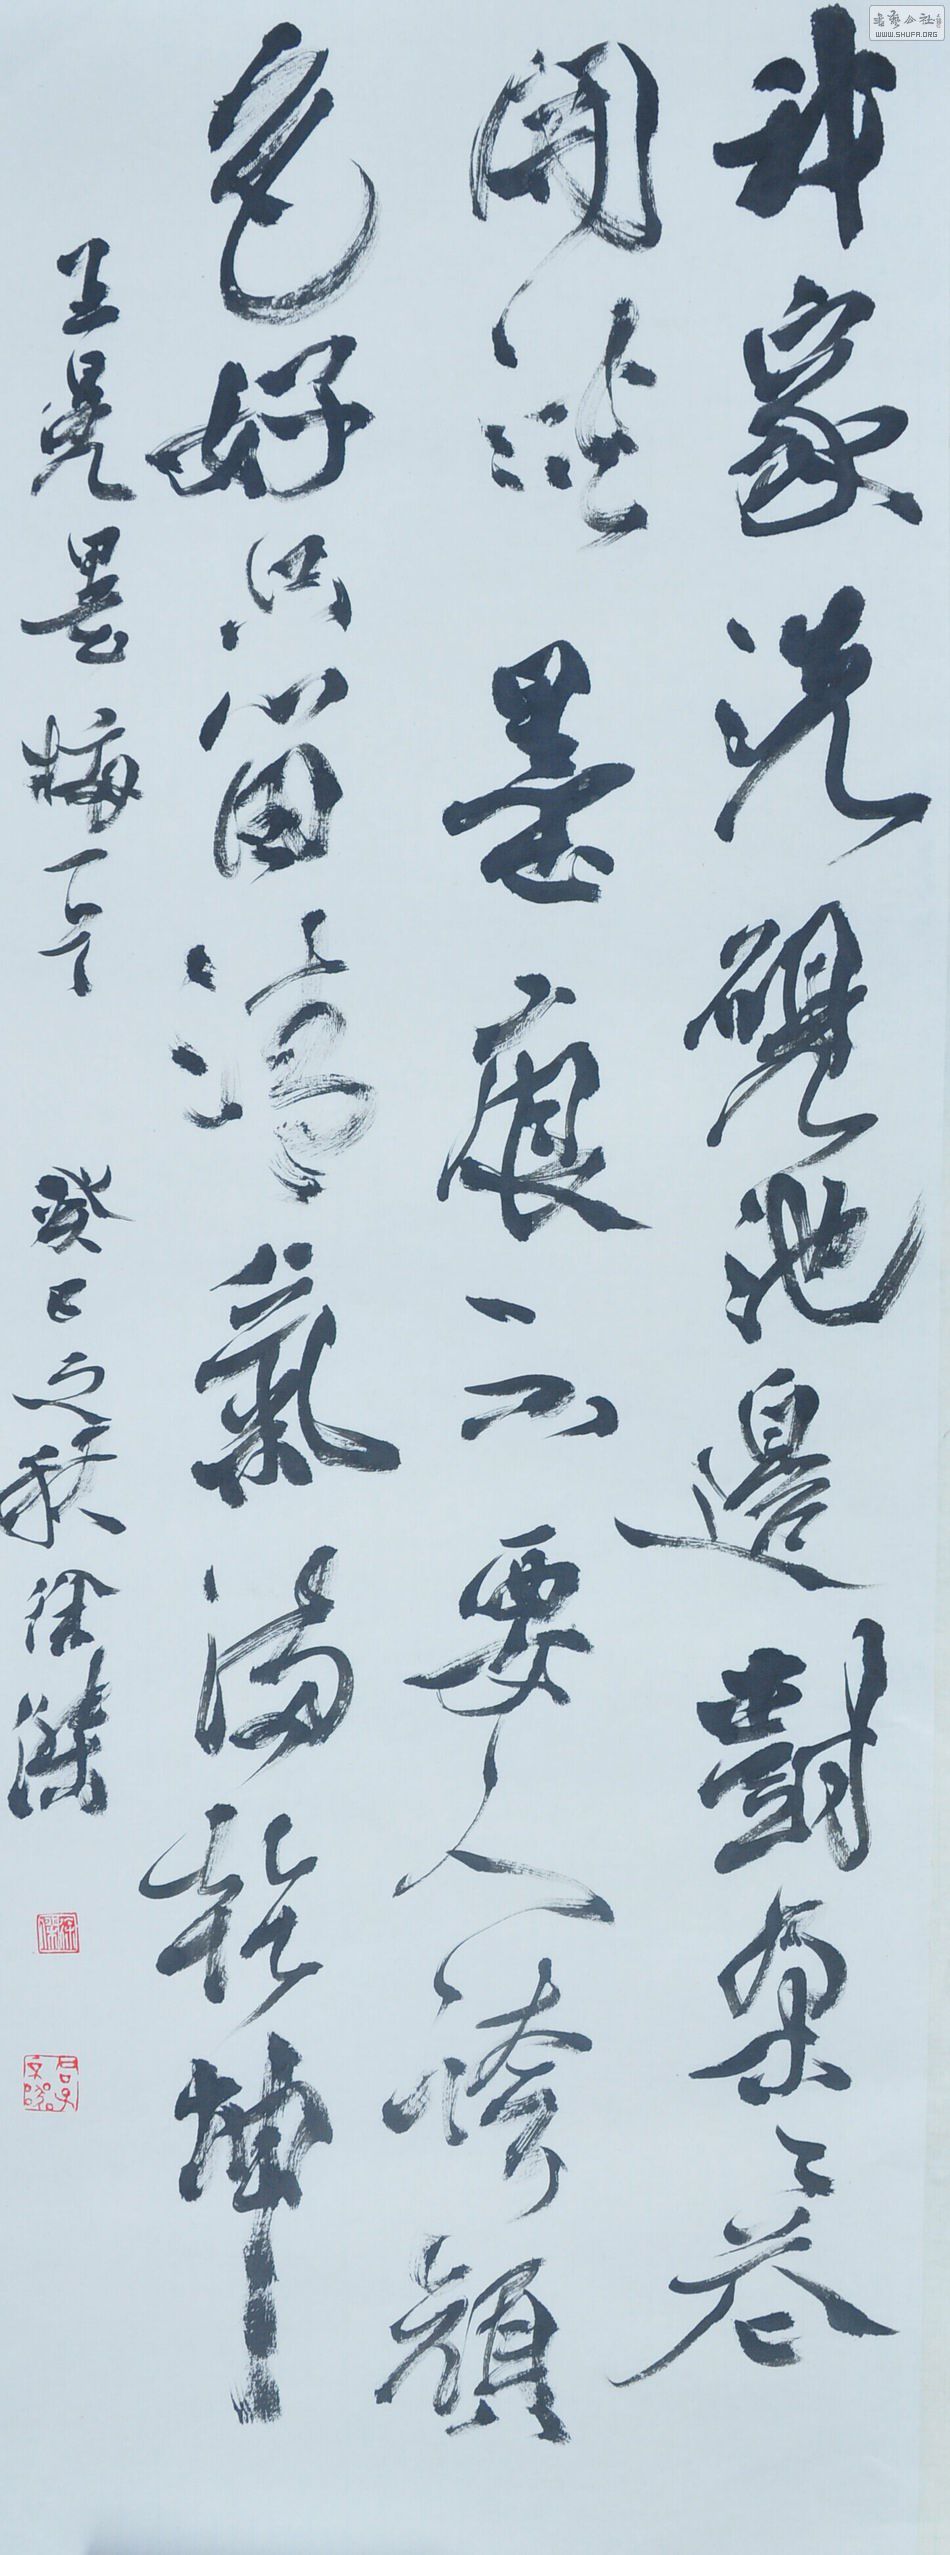 書藝公社
WWW.SHUFA.ORG
我家洗硯池邊樹朵々花
開淡墨痕不要人誇顏
色好只留清氣滿乾坤
王冕墨梅一首 癸巳之秋徐傑
徐傑